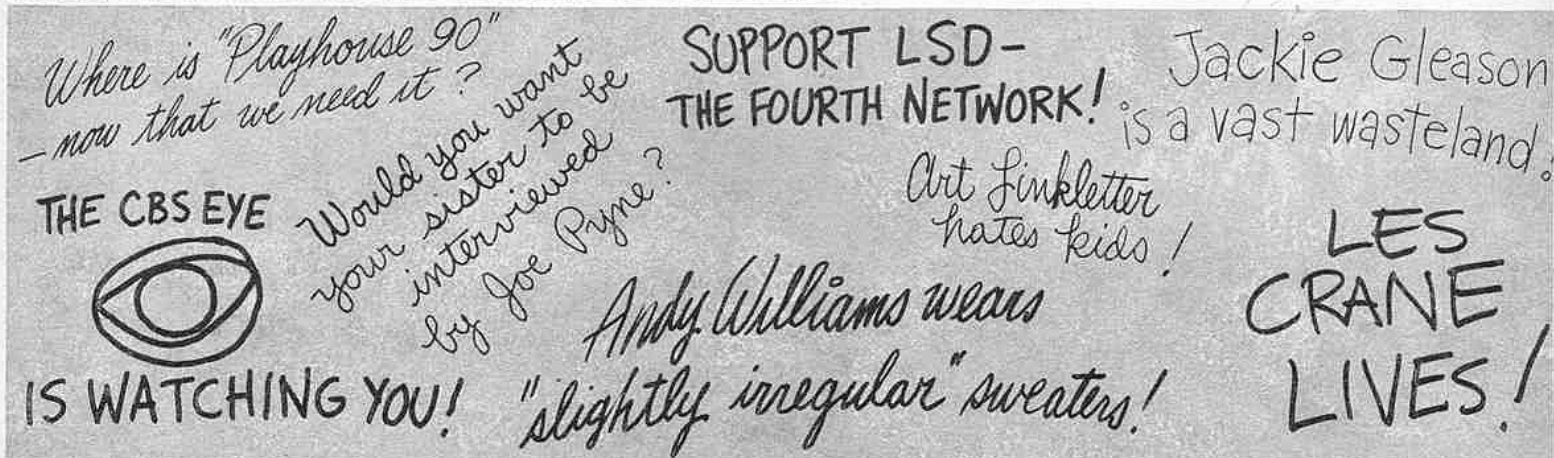 Where is "Playhouse 90"
— now that we need it?
Would you want
your sister to be
interviewed
by Joe Pyne?
SUPPORT LSD-
THE FOURTH NETWORK!
Jackie Gleason
is a vast wasteland!
THE CBS EYE
IS WATCHING YOU!
Art Linkletter
hates kids!
Andy Williams wears
"slightly irregular" sweaters!
LES
CRANE
LIVES!